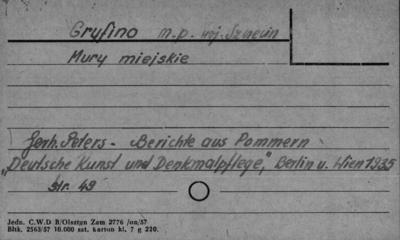 Gryfino m.p. woj. Szczecin
Mury miejskie
Gerh. Peters - Berichte aus Pommern
"Deutsche Kunst und Denkmalpflege", Berlin u. Wien 1935
str. 49
Jedn. C.W.D B/Olsztyn Zam 2776 /on/57
Bltk. 2563/57 10.000 szt. karton kl. 7 g 220.